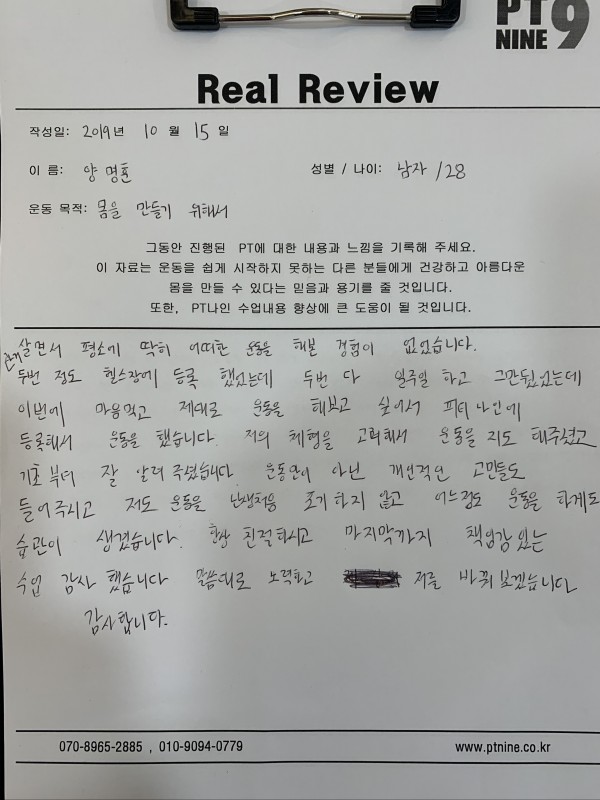 PT
NINE 9
Real Review
작성일: 2019년 10 월 15 일
이 름: 양명훈 성별 / 나이: 남자 / 28
운동 목적: 몸을 만들기 위해서
그동안 진행된 PT에 대한 내용과 느낌을 기록해 주세요.
이 자료는 운동을 쉽게 시작하지 못하는 다른 분들에게 건강하고 아름다운
몸을 만들 수 있다는 믿음과 용기를 줄 것입니다.
또한, PT나인 수업내용 향상에 큰 도움이 될 것입니다.
살면서 평소에 딱히 어떠한 운동을 해본 경험이 없었습니다.
두번 정도 헬스장에 등록 했었는데 두번 다 일주일 하고 그만뒀었는데
이번에 마음먹고 제대로 운동을 해보고 싶어서 피티나인에
등록해서 운동을 했습니다. 저의 체형을 고려해서 운동을 지도 해주셨고
기초부터 잘 알려주셨습니다. 운동만이 아닌 개인적인 고민들도
들어주시고 저도 운동을 난생처음 포기하지 않고 어느정도 운동을 하게도
습관이 생겼습니다. 항상 친절하시고 마지막까지 책임감있는
수업 감사 했습니다 말씀대로 노력하고 저를 바꿔보겠습니다
감사합니다.
070-8965-2885 , 010-9094-0779 www.ptnine.co.kr